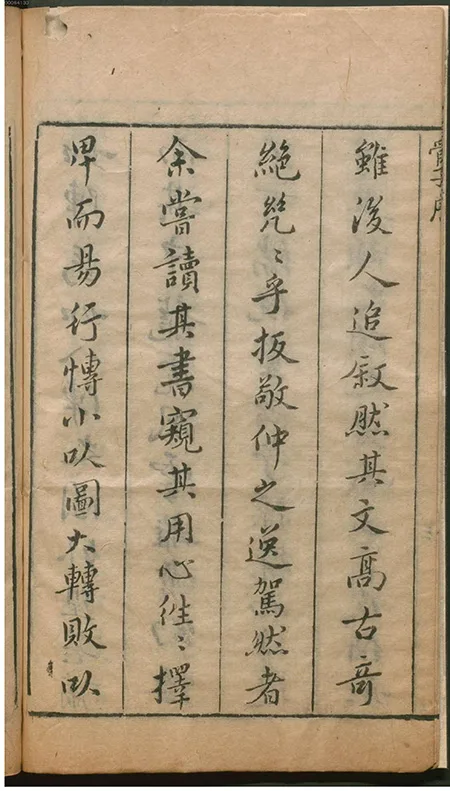 雖後人追敘然其文高古奇
絕凳〻乎扳敬仲之逸駕然者
余嘗讀其書窺其用心徃〻擇
卑而易行慱小以圖大轉敗以